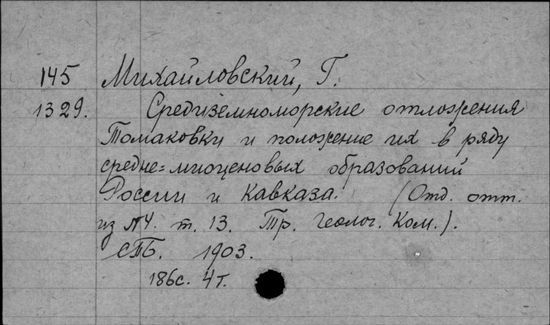 145 Михайловский, Г.
1329. Средиземноморские отложения
Томаковки и положение их в ряду
средне=миоценовых образований
России и Кавказа. (Отд. отт.
из №4. т. 13. Тр. Геолог. Ком.).
СПБ. 1903.
186с. 4т.